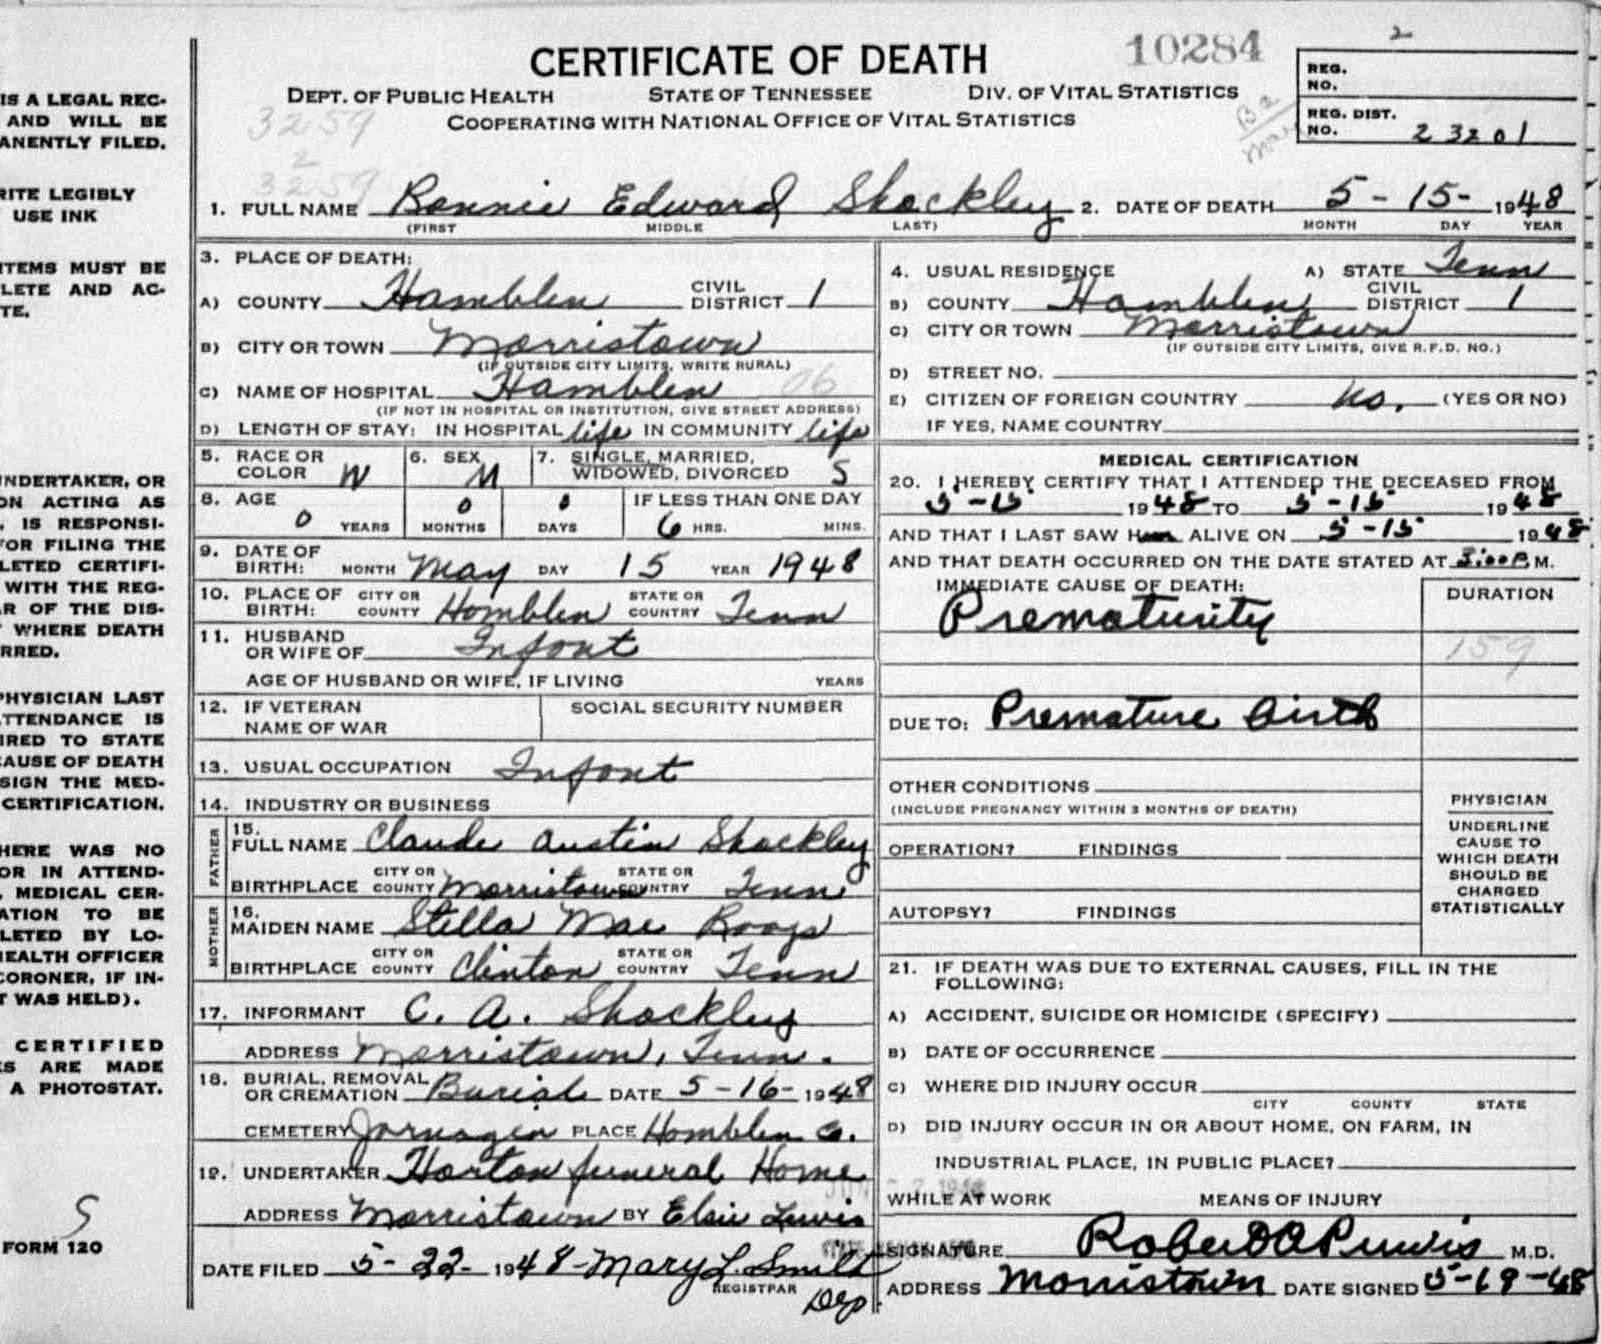 CERTIFICATE OF DEATH
10284
2
DEPT. OF PUBLIC HEALTH STATE OF TENNESSEE DIV. OF VITAL STATISTICS
COOPERATING WITH NATIONAL OFFICE OF VITAL STATISTICS
3259
2
3259
REG. NO.
REG. DIST. NO. 23201
IS A LEGAL REC-
AND WILL BE
ANENTLY FILED.
RITE LEGIBLY
USE INK
ITEMS MUST BE
LETE AND AC-
TE.
UNDERTAKER, OR
ON ACTING AS
, IS RESPONSI-
FOR FILING THE
LETED CERTIFI-
WITH THE REG-
R OF THE DIS-
WHERE DEATH
RRED.
PHYSICIAN LAST
TTENDANCE IS
IRED TO STATE
CAUSE OF DEATH
SIGN THE MED-
CERTIFICATION.
HERE WAS NO
OR IN ATTEND-
, MEDICAL CER-
ATION TO BE
LETED BY LO-
HEALTH OFFICER
CORONER, IF IN-
T WAS HELD).
CERTIFIED
ES ARE MADE
A PHOTOSTAT.
S
FORM 120
1. FULL NAME Bonnie Edward Shockley 2. DATE OF DEATH 5-15-1948
(FIRST MIDDLE LAST) MONTH DAY YEAR
3. PLACE OF DEATH:
A) COUNTY Hamblen CIVIL DISTRICT 1
B) CITY OR TOWN Morristown
(IF OUTSIDE CITY LIMITS, WRITE RURAL)
C) NAME OF HOSPITAL Hamblen 06
(IF NOT IN HOSPITAL OR INSTITUTION, GIVE STREET ADDRESS)
D) LENGTH OF STAY: IN HOSPITAL life IN COMMUNITY life
4. USUAL RESIDENCE A) STATE Tenn
B) COUNTY Hamblen CIVIL DISTRICT 1
C) CITY OR TOWN Morristown
(IF OUTSIDE CITY LIMITS, GIVE R.F.D. NO.)
D) STREET NO.
E) CITIZEN OF FOREIGN COUNTRY no. (YES OR NO)
IF YES, NAME COUNTRY
5. RACE OR COLOR W 6. SEX M 7. SINGLE, MARRIED, WIDOWED, DIVORCED S
8. AGE 0 YEARS 0 MONTHS 0 DAYS IF LESS THAN ONE DAY 6 HRS. MINS.
9. DATE OF BIRTH: MONTH May DAY 15 YEAR 1948
10. PLACE OF BIRTH: CITY OR COUNTY Hamblen STATE OR COUNTRY Tenn
11. HUSBAND OR WIFE OF Infant
AGE OF HUSBAND OR WIFE, IF LIVING YEARS
12. IF VETERAN NAME OF WAR SOCIAL SECURITY NUMBER
13. USUAL OCCUPATION Infant
14. INDUSTRY OR BUSINESS
FATHER
15. FULL NAME Claude Austin Shockley
BIRTHPLACE CITY OR COUNTY Morristown STATE OR COUNTRY Tenn
MOTHER
16. MAIDEN NAME Stella Mae
BIRTHPLACE CITY OR COUNTY Clinton STATE OR COUNTRY Tenn
17. INFORMANT C. A. Shockley
ADDRESS Morristown, Tenn.
18. BURIAL, REMOVAL OR CREMATION Burial DATE 5-16-1948
CEMETERY Jarnagin PLACE Hamblen Co.
19. UNDERTAKER Horton funeral Home
ADDRESS Morristown BY Elsie Lewis
DATE FILED 5-22-1948-Mary L. Smith
REGISTRAR Dep
MEDICAL CERTIFICATION
20. I HEREBY CERTIFY THAT I ATTENDED THE DECEASED FROM
5-15 1948 TO 5-15 1948
AND THAT I LAST SAW Him ALIVE ON 5-15 1948
AND THAT DEATH OCCURRED ON THE DATE STATED AT 3:00 P. M.
IMMEDIATE CAUSE OF DEATH: DURATION
Prematurity
159
DUE TO: Premature birth
OTHER CONDITIONS
(INCLUDE PREGNANCY WITHIN 3 MONTHS OF DEATH)
OPERATION? FINDINGS
AUTOPSY? FINDINGS
PHYSICIAN
UNDERLINE
CAUSE TO
WHICH DEATH
SHOULD BE
CHARGED
STATISTICALLY
21. IF DEATH WAS DUE TO EXTERNAL CAUSES, FILL IN THE
FOLLOWING:
A) ACCIDENT, SUICIDE OR HOMICIDE (SPECIFY)
B) DATE OF OCCURRENCE
C) WHERE DID INJURY OCCUR
CITY COUNTY STATE
D) DID INJURY OCCUR IN OR ABOUT HOME, ON FARM, IN
INDUSTRIAL PLACE, IN PUBLIC PLACE?
WHILE AT WORK MEANS OF INJURY
SIGNATURE M.D.
ADDRESS Morristown DATE SIGNED 5-19-48